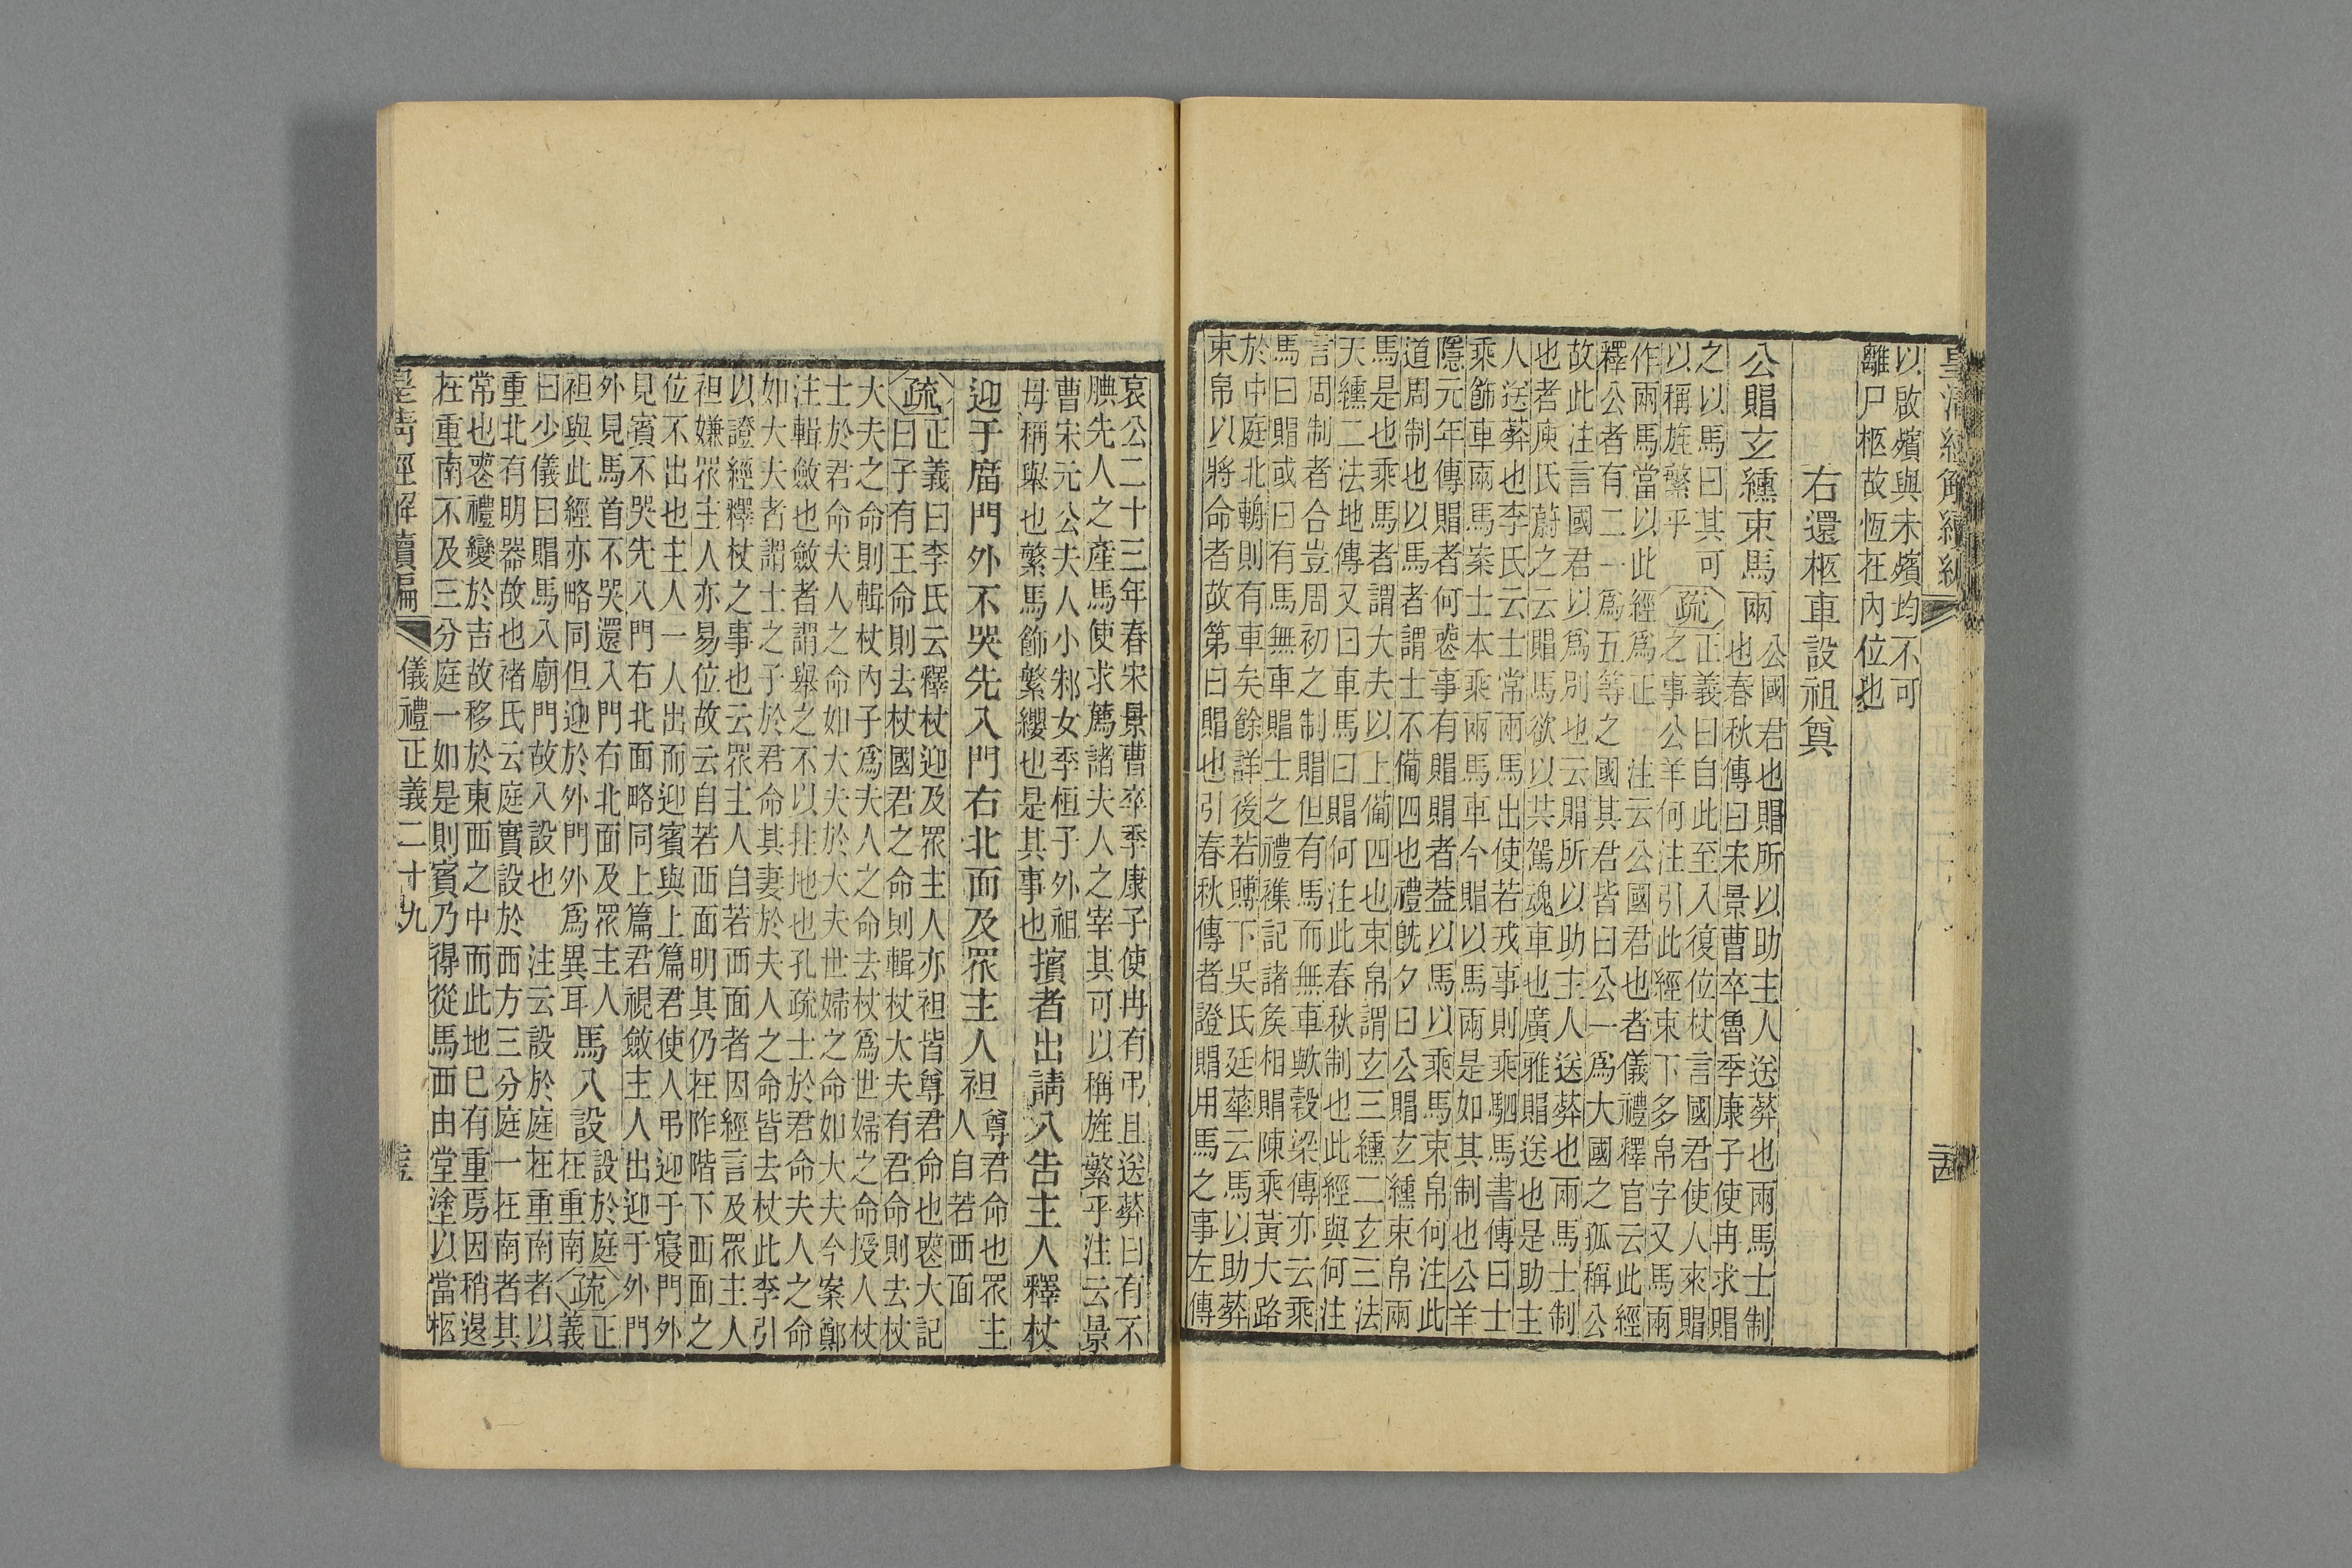 以啟殯與未殯均不可
離尸柩故恆在內位也
右還柩車設祖奠
公賵玄纁束馬兩
公國君也賵所以助主人送葬也兩馬士制
也春秋傳曰宋景曹卒魯季康子使冉求賵
之以馬曰其可
以稱旌繁乎
疏
正義曰自此至入復位杖言國君使人來賵
之事公羊何注引此經束下多帛字又馬兩
作兩馬當以此經為正　注云公國君也者儀禮釋官云此經
釋公者有二一為五等之國其君皆曰公一為大國之孤稱公
故此注言國君以為別也云賵所以助主人送葬也兩馬士制
也者庾氏蔚之云賵馬欲以共駕魂車也廣雅賵送也是助主
人送葬也李氏云士常兩馬出使若戎事則乘駟馬書傳曰士
乘飾車兩馬案士本乘兩馬車今賵以馬兩是如其制也公羊
隱元年傳賵者何喪事有賵賵者葢以馬以乘馬束帛何注此
道周制也以馬者謂士不備四也禮旣夕曰公賵玄纁束帛兩
馬是也乘馬者謂大夫以上備四也束帛謂玄三纁二玄三法
天纁二法地傳又曰車馬曰賵何注此春秋制也此經與何注
言周制者合豈周初之制賵但有馬而無車歟穀梁傳亦云乘
馬曰賵或曰有馬無車賵士之禮襍記諸矦相賵陳乘黃大路
於中庭北輈則有車矣餘詳後若賻下吳氏廷華云馬以助葬
束帛以將命者故第曰賵也引春秋傳者證賵用馬之事左傳
哀公二十三年春宋景曹卒季康子使冉有弔且送葬曰有不
腆先人之產馬使求薦諸夫人之宰其可以稱旌繁乎注云景
曹宋元公夫人小邾女季桓子外祖
母稱舉也繁馬飾繁纓也是其事也
擯者出請入告主人釋杖
迎于廟門外不哭先入門右北面及眾主人袒
尊君命也眾主
人自若西面
疏
正義曰李氏云釋杖迎及眾主人亦袒皆尊君命也喪大記
曰子有王命則去杖國君之命則輯杖大夫有君命則去杖
大夫之命則輯杖內子為夫人之命去杖為世婦之命授人杖
士於君命夫人之命如大夫於大夫世婦之命如大夫今案鄭
注輯斂也斂者謂舉之不以拄地也孔疏士於君命夫人之命
如大夫者謂士之子於君命其妻於夫人之命皆去杖此李引
以證經釋杖之事也云眾主人自若西面者因經言及眾主人
袒嫌眾主人亦易位故云自若西面明其仍在阼階下西面之
位不出也主人一人出而迎賓與上篇君使人弔迎于寢門外
見賓不哭先入門右北面略同上篇君視斂主人出迎于外門
外見馬首不哭還入門右北面及眾主人
袒與此經亦略同但迎於外門外為異耳
馬入設
設於庭
在重南
疏
正
義
曰少儀曰賵馬入廟門故入設也　注云設於庭在重南者以
重北有明器故也褚氏云庭實設於西方三分庭一在南者其
常也喪禮變於吉故移於東西之中而此地已有重焉因稍退
在重南不及三分庭一如是則賓乃得從馬西由堂塗以當柩
儀禮正義二十九